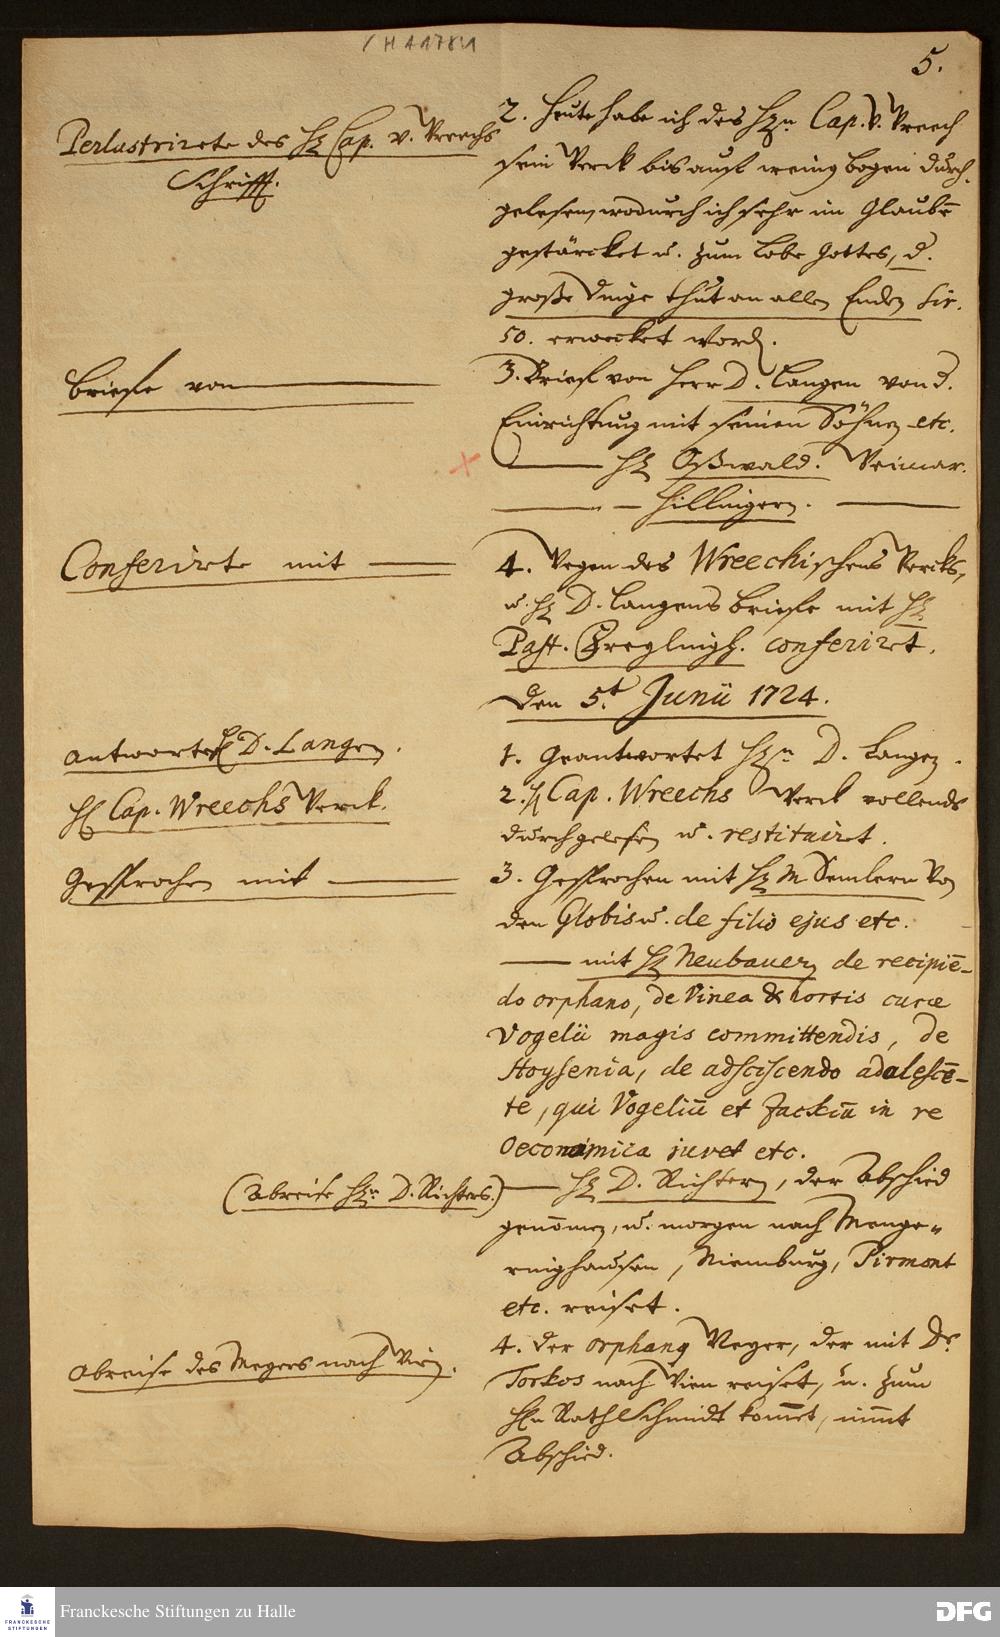 / H A 178:1
5.
Perlustrirete des H Cap. v. Wreechs
Schrifft.
2. Heute habe ich des Hrn Cap. v. Wreech
sein Werck bis auf wenig bogen durch-
gelesen, wodurch ich sehr im Glaubē
gestärcket u. zum Lobe Gottes, d.
große Dinge thut an allen Enden Sir.
50. erwecket word.
Briefe von
3. Brief von Herr D. Langen von d.
Einrichtung mit seinen Söhnen etc.
H Oßwald. Weimar.
Hillingern.
Conferirte mit
4. Wegen des Wreechischens Wercks,
u. H D. Langens Briefe mit H
Past. Freylingh. conferiret.
Den 5.t Junii 1724.
antwortet H D. Langen.
1. Geantwortet Hrn D. Langen.
H Cap. Wreechs Werck.
2. H Cap. Wreechs Werck vollends
durchgelesen u. restituiret.
Gesprochen mit
3. Gesprochen mit H M Semlern von
den Globis u. de filio ejus etc.
mit H Neubauer, de recipiē-
do orphano, de Vinea & hortis curæ
Vogelii magis committendis, de
Hoysenia, de adsciscendo adolescē-
te, qui Vogeliū et Jackiū in re
oeconomica juvet etc.
(Abreise Hrn D. Richters.)
H D. Richtern, der Abschied
genom̄en, u. morgen nach Menge-
ringhausen, Niemburg, Pirmont
etc. reiset.
Abreise des Megers nach Wien.
4. der orphang Meyer, der mit Dr
Torkos nach Wien reiset, u. zum
Hn Rath Schmidt kom̄et, nim̄t
Abschied.
Franckesche Stiftungen zu Halle
FRANCKESCHE
STIFTUNGEN
DFG